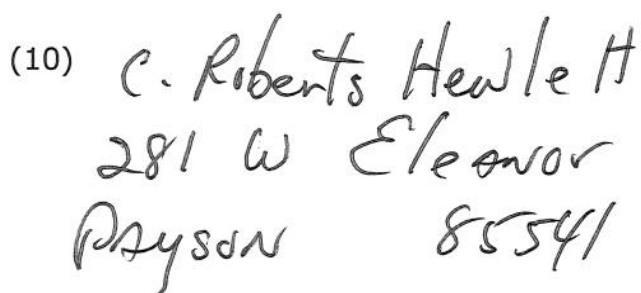 (10) C. Roberts Hewlett
281 W Eleanor
PAYSON 85541